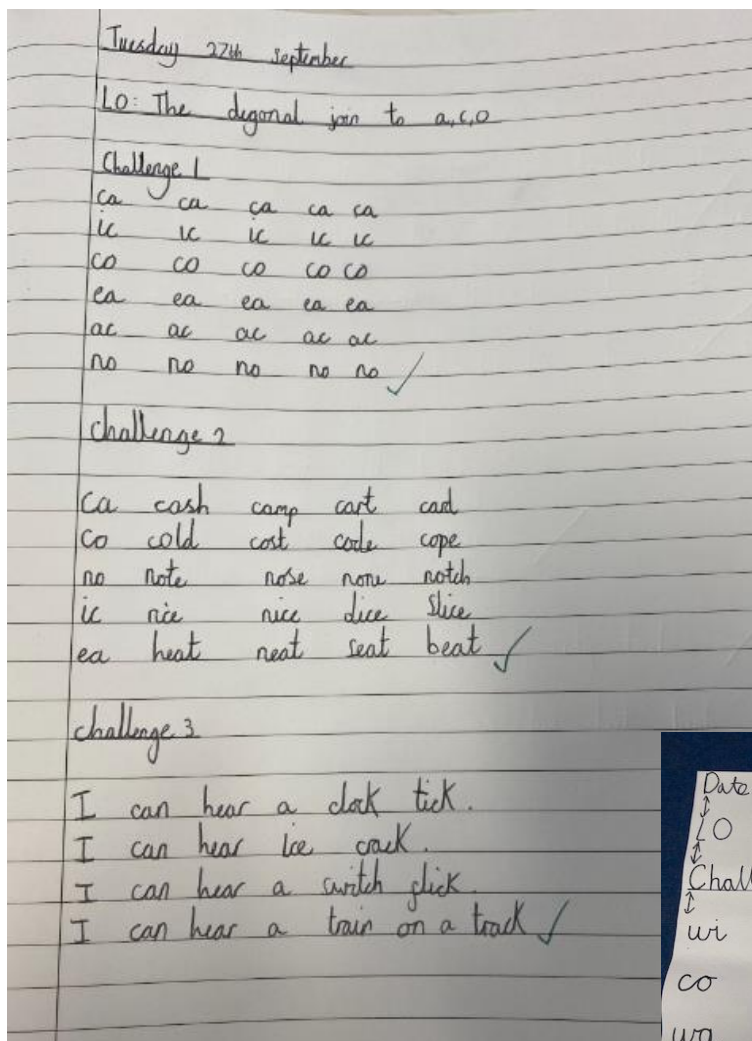 Tuesday 27th September
LO: The digonal join to a,c,o
Challenge 1
ca ca ca ca ca
ic ic ic ic ic
co co co co co
ea ea ea ea ea
ac ac ac ac ac
no no no no no
Challenge 2
ca cash camp cart card
co cold cost code cope
no note nose none notch
ic rice nice dice slice
ea heat neat seat beat
challenge 3
I can hear a clock tick.
I can hear ice crack.
I can hear a switch flick.
I can hear a train on a track
Date
LO
Chall
wi
co
wa